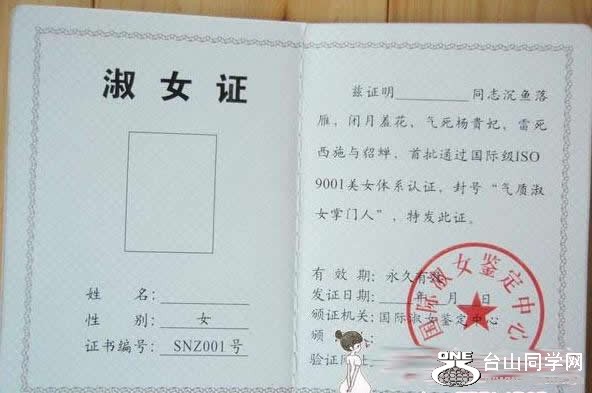 淑女证
姓 名：
性 别： 女
证书编号： SNZ001号
兹证明 同志沉鱼落
雁，闭月羞花，气死杨贵妃，雷死
西施与貂蝉，首批通过国际级ISO
9001美女体系认证，封号“气质淑
女掌门人”，特发此证。
有 效 期：永久有
发证日期： 年 月 日
颁证机关：国际淑女鉴定中心
颁
验证网址：
国际淑女鉴定中心
ONE
台山同学网